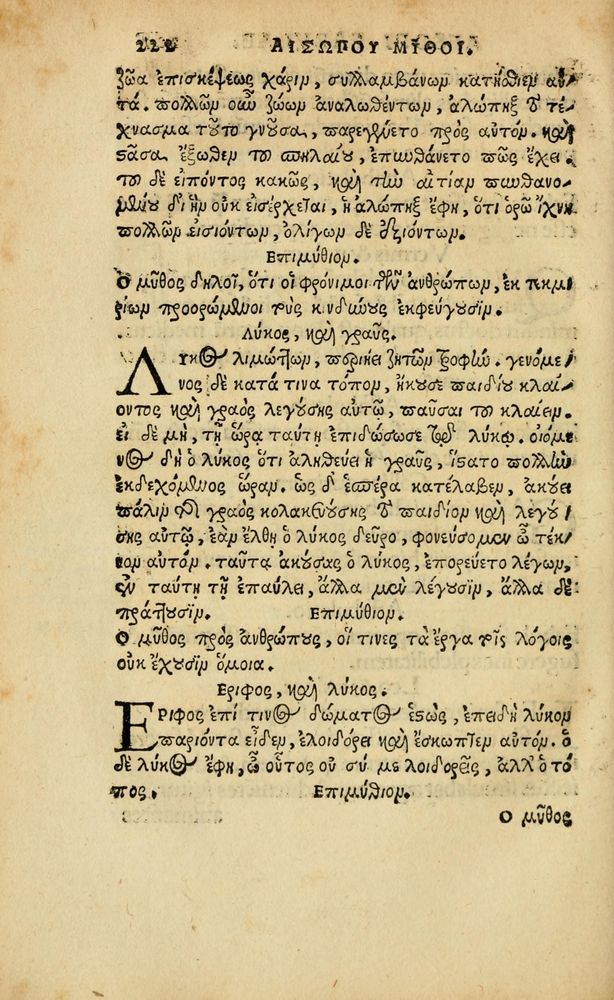 228 ΑΙΣΩΠΟΥ ΜΥΘΟΙ.
ζῶα ἐπισκέψεως χάριν, συλλαμβάνων κατήσθιεν αὐ-
τά. πολλῶν οὖν ζώων ἀναλωθέντων, ἀλώπηξ τὸ τέ-
χνασμα τοῦτο γνοῦσα, παρεγένετο πρὸς αὐτόν. καὶ
στᾶσα ἔξωθεν τοῦ σπηλαίου, ἐπυνθάνετο πῶς ἔχει.
τοῦ δὲ εἰπόντος κακῶς, καὶ τὴν αἰτίαν πυνθανο-
μένου δι' ἣν οὐκ εἰσέρχεται, ἡ ἀλώπηξ ἔφη, ὅτι ὁρῶ ἴχνη
πολλῶν εἰσιόντων, ὀλίγων δὲ ἐξιόντων.
Επιμύθιον.
Ο μῦθος δηλοῖ, ὅτι οἱ φρόνιμοι τῶν ἀνθρώπων, ἐκ τεκμη-
ρίων προορώμενοι τοὺς κινδύνους ἐκφεύγουσιν.
Λύκος, καὶ γραῦς.
Λύκος λιμώττων, περιῄει ζητῶν τροφήν. γενόμε-
νος δὲ κατά τινα τόπον, ἤκουσε παιδίου κλαί-
οντος καὶ γραὸς λεγούσης αὐτῷ, παῦσαι τοῦ κλαίειν.
εἰ δὲ μὴ, τῇ ὥρᾳ ταύτῃ ἐπιδώσω σε τῷ λύκῳ. οἰόμε-
νος δὴ ὁ λύκος ὅτι ἀληθεύει ἡ γραῦς, ἵστατο πολλὴν
ἐκδεχόμενος ὥραν. ὡς δ' ἑσπέρα κατέλαβεν, ἀκούει
πάλιν τῆς γραὸς κολακευούσης τὸ παιδίον καὶ λεγού-
σης αὐτῷ, ἐὰν ἔλθῃ ὁ λύκος δεῦρο, φονεύσομεν ὦ τέκ-
νον αὐτόν. ταῦτα ἀκούσας ὁ λύκος, ἐπορεύετο λέγων,
ἐν ταύτῃ τῇ ἐπαύλει, ἄλλα μὲν λέγουσιν, ἄλλα δὲ
πράττουσιν. Επιμύθιον.
Ο μῦθος πρὸς ἀνθρώπους, οἵ τινες τὰ ἔργα τοῖς λόγοις
οὐκ ἔχουσιν ὅμοια.
Εριφος, καὶ λύκος.
ΕΡΙΦΟΣ ἐπί τινος δώματος ἑστὼς, ἐπειδὴ λύκον
παριόντα εἶδεν, ἐλοιδόρει καὶ ἔσκωπτεν αὐτόν. ὁ
δὲ λύκος ἔφη, ὦ οὗτος οὐ σύ με λοιδορεῖς, ἀλλ' ὁ τό-
πος. Επιμύθιον.
Ο μῦθος